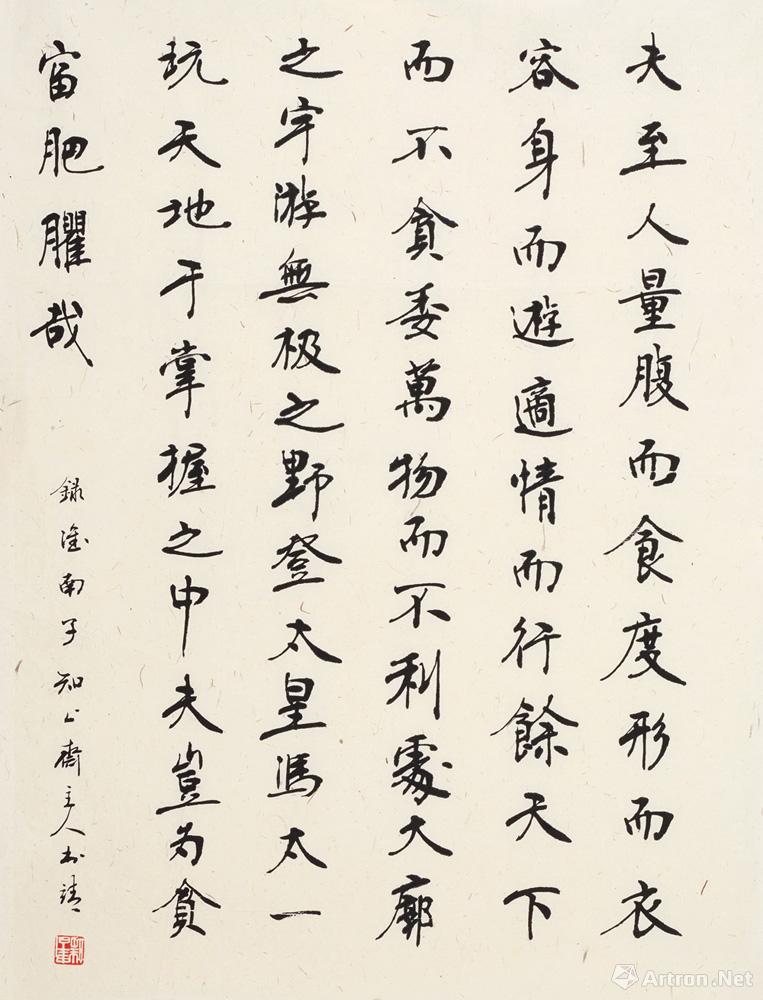 夫至人量腹而食度形而衣
容身而遊適情而行餘天下
而不貪委萬物而不利處大廓
之宇游無极之野登太皇馮太一
玩天地于掌握之中夫豈为貧
富肥臞哉
錄淮南子 知止齋主人 書靖
Artron.Net